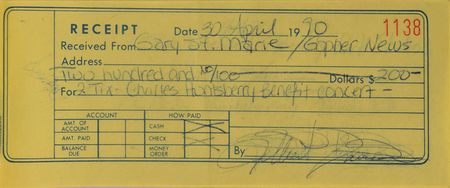 RECEIPT Date 30 April 1990 1138
Received From Gary St. Marie / Gopher News
Address
Two hundred and no/100 Dollars $200-
For 2 Tix- Charles Huntsberry benefit concert -
ACCOUNT HOW PAID
AMT. OF ACCOUNT CASH
AMT. PAID CHECK
BALANCE DUE MONEY ORDER
By